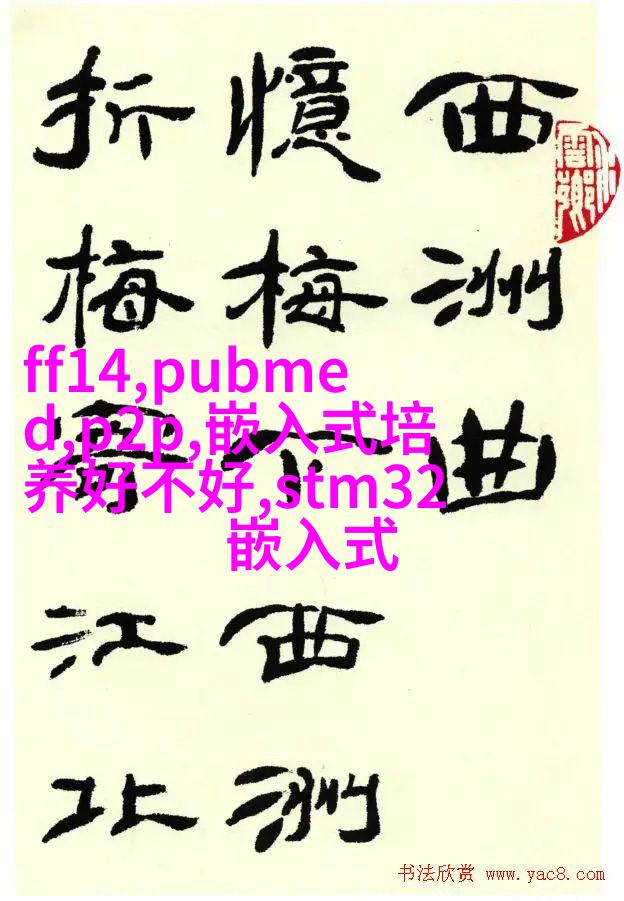 西洲曲
憶梅下西洲
折梅寄江北
ff14,pubme
d,p2p,嵌入式培
养好不好,stm32
嵌入式
书法欣赏
www.yac8.com